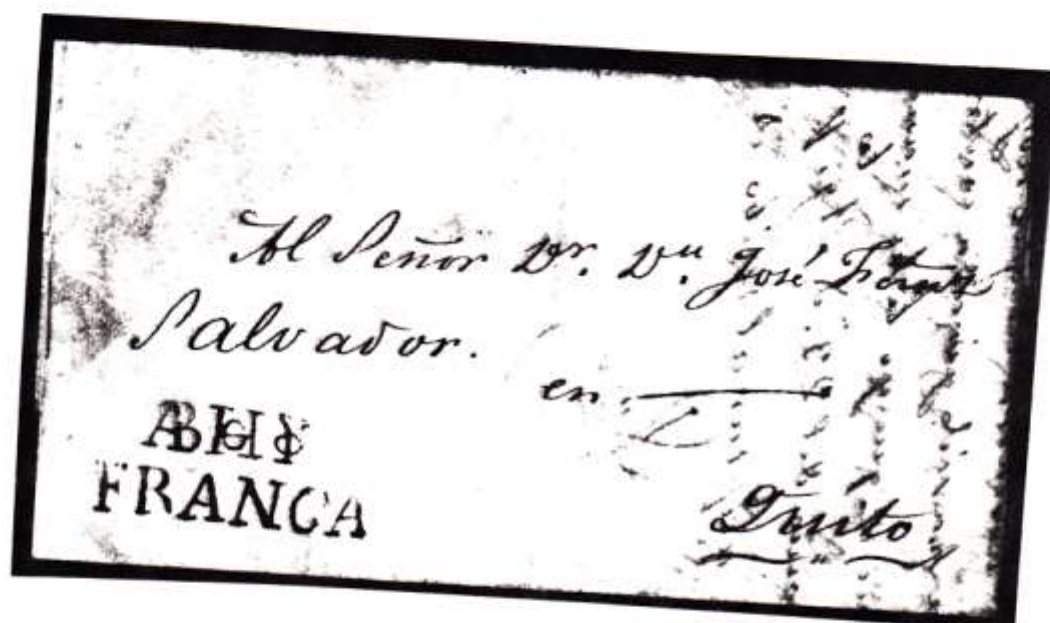 Al Señor Dr. Dn. José
Salvador.
en
FRANCA
Quito